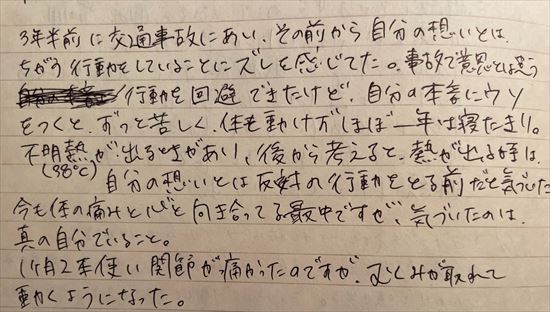 3年半前に交通事故にあい、その前から自分の想いとは
ちがう行動をしていることにズレを感じてた。事故で意思とは違う
行動を回避できたけど、自分の本音にウソ
をつくと、ずっと苦しく、体も動けずほぼ一年は寝たきり。
不明熱が出るときがあり、後から考えると、熱が出る時は、
(38℃)
自分の想いとは反対の行動をとる前だと気づいた
今も体の痛みと心と向き合ってる最中ですが、気づいたのは、
真の自分でいること。
1ヶ月2本使い関節が痛かったのですが、むくみが取れて
動くようになった。